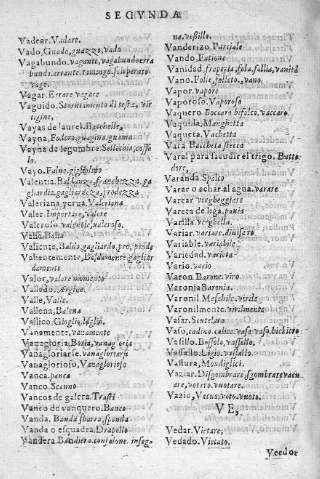 SEGVNDA
Vadear. Vadare.
Vado, Guado, guazzo, vado
Vagabundo. vagante, vagabundo erra
bundo. errante. ramengo. scioperato
vago.
Vagar. Errare vagare
Vaguido. Stornimento di testa, vir
tigine.
Vayas de laurel. Bacchelle.
Vayna. Fodero, guaina
Vayna de legumbre. Scilicino, cosso
lo.
Vayo.
Valentia. Baldanza
gagliardia, gagliardezza, prodezza
Valeriana yerua. Valeriana
Valer. Importare, valere
Valeroso. valoroso.
Valla. Balla
Valiente. Baldo, gagliardo, pro, prode
Valientemente. gagliar
damente
Valor, valore momento
Vallado.
Valle, Valle.
Vallena, Balena
Vallico. Gioglio, loglio.
Vanamente. vanamente
Vanagloria. vanagloria
Vanagloriarse. vanagloriarsi
Vanaglorioso, Vanaglorioso
Vanca. panca
Vanco. Scanno
Vancos de galera. Trasti
Vanco de vanquero. Banco
Vanda. Banda sbarra,
Vanda o esquadra. Drapello
Vandera Bandiera, confalone. inseg
na, vessillo.
Vanderizo. Partiale
Vando. Fatione
Vanidad, sopritia, fola, follia, vanità
Vano. Folle, folleto, vano.
Vapor. vapore
Vaporoso. Vaporoso
Vaquero. Boccaro bifolco, vaccaro
Vaquilla. Manzhetta
Vaqueta. Vachetta
Vara Bacchetta stecca
Varal para sacudir el trigo. Batto
dore,
Varanda Spolto
Varar o echar al agua. varare
Varear vergheggiare
Vareta de liga. pania
Varilla. verghella
Variar. variare, divisare
Variable. variabile
Variedad. varietà
Vario. vario
Varon. Barone. vivo
Varonia Baronia.
Varonil. Maschile, virile
Varonilmente. virilmente
Vasar. Scancelara.
Vaso, cadino. calice vaso vaso, bichiero
Vasillo. Bossolo, vasello
Vasallo. Ligio. vassallo
Vastura, Mondiglici
Vaziar. Disgombrare, sgombrare vacu
are. votare. vuotare.
Vazio, Vacuo, voto, vuoto.
VE,
Vedar. Victare,
Vedado. Victato.
Veedor